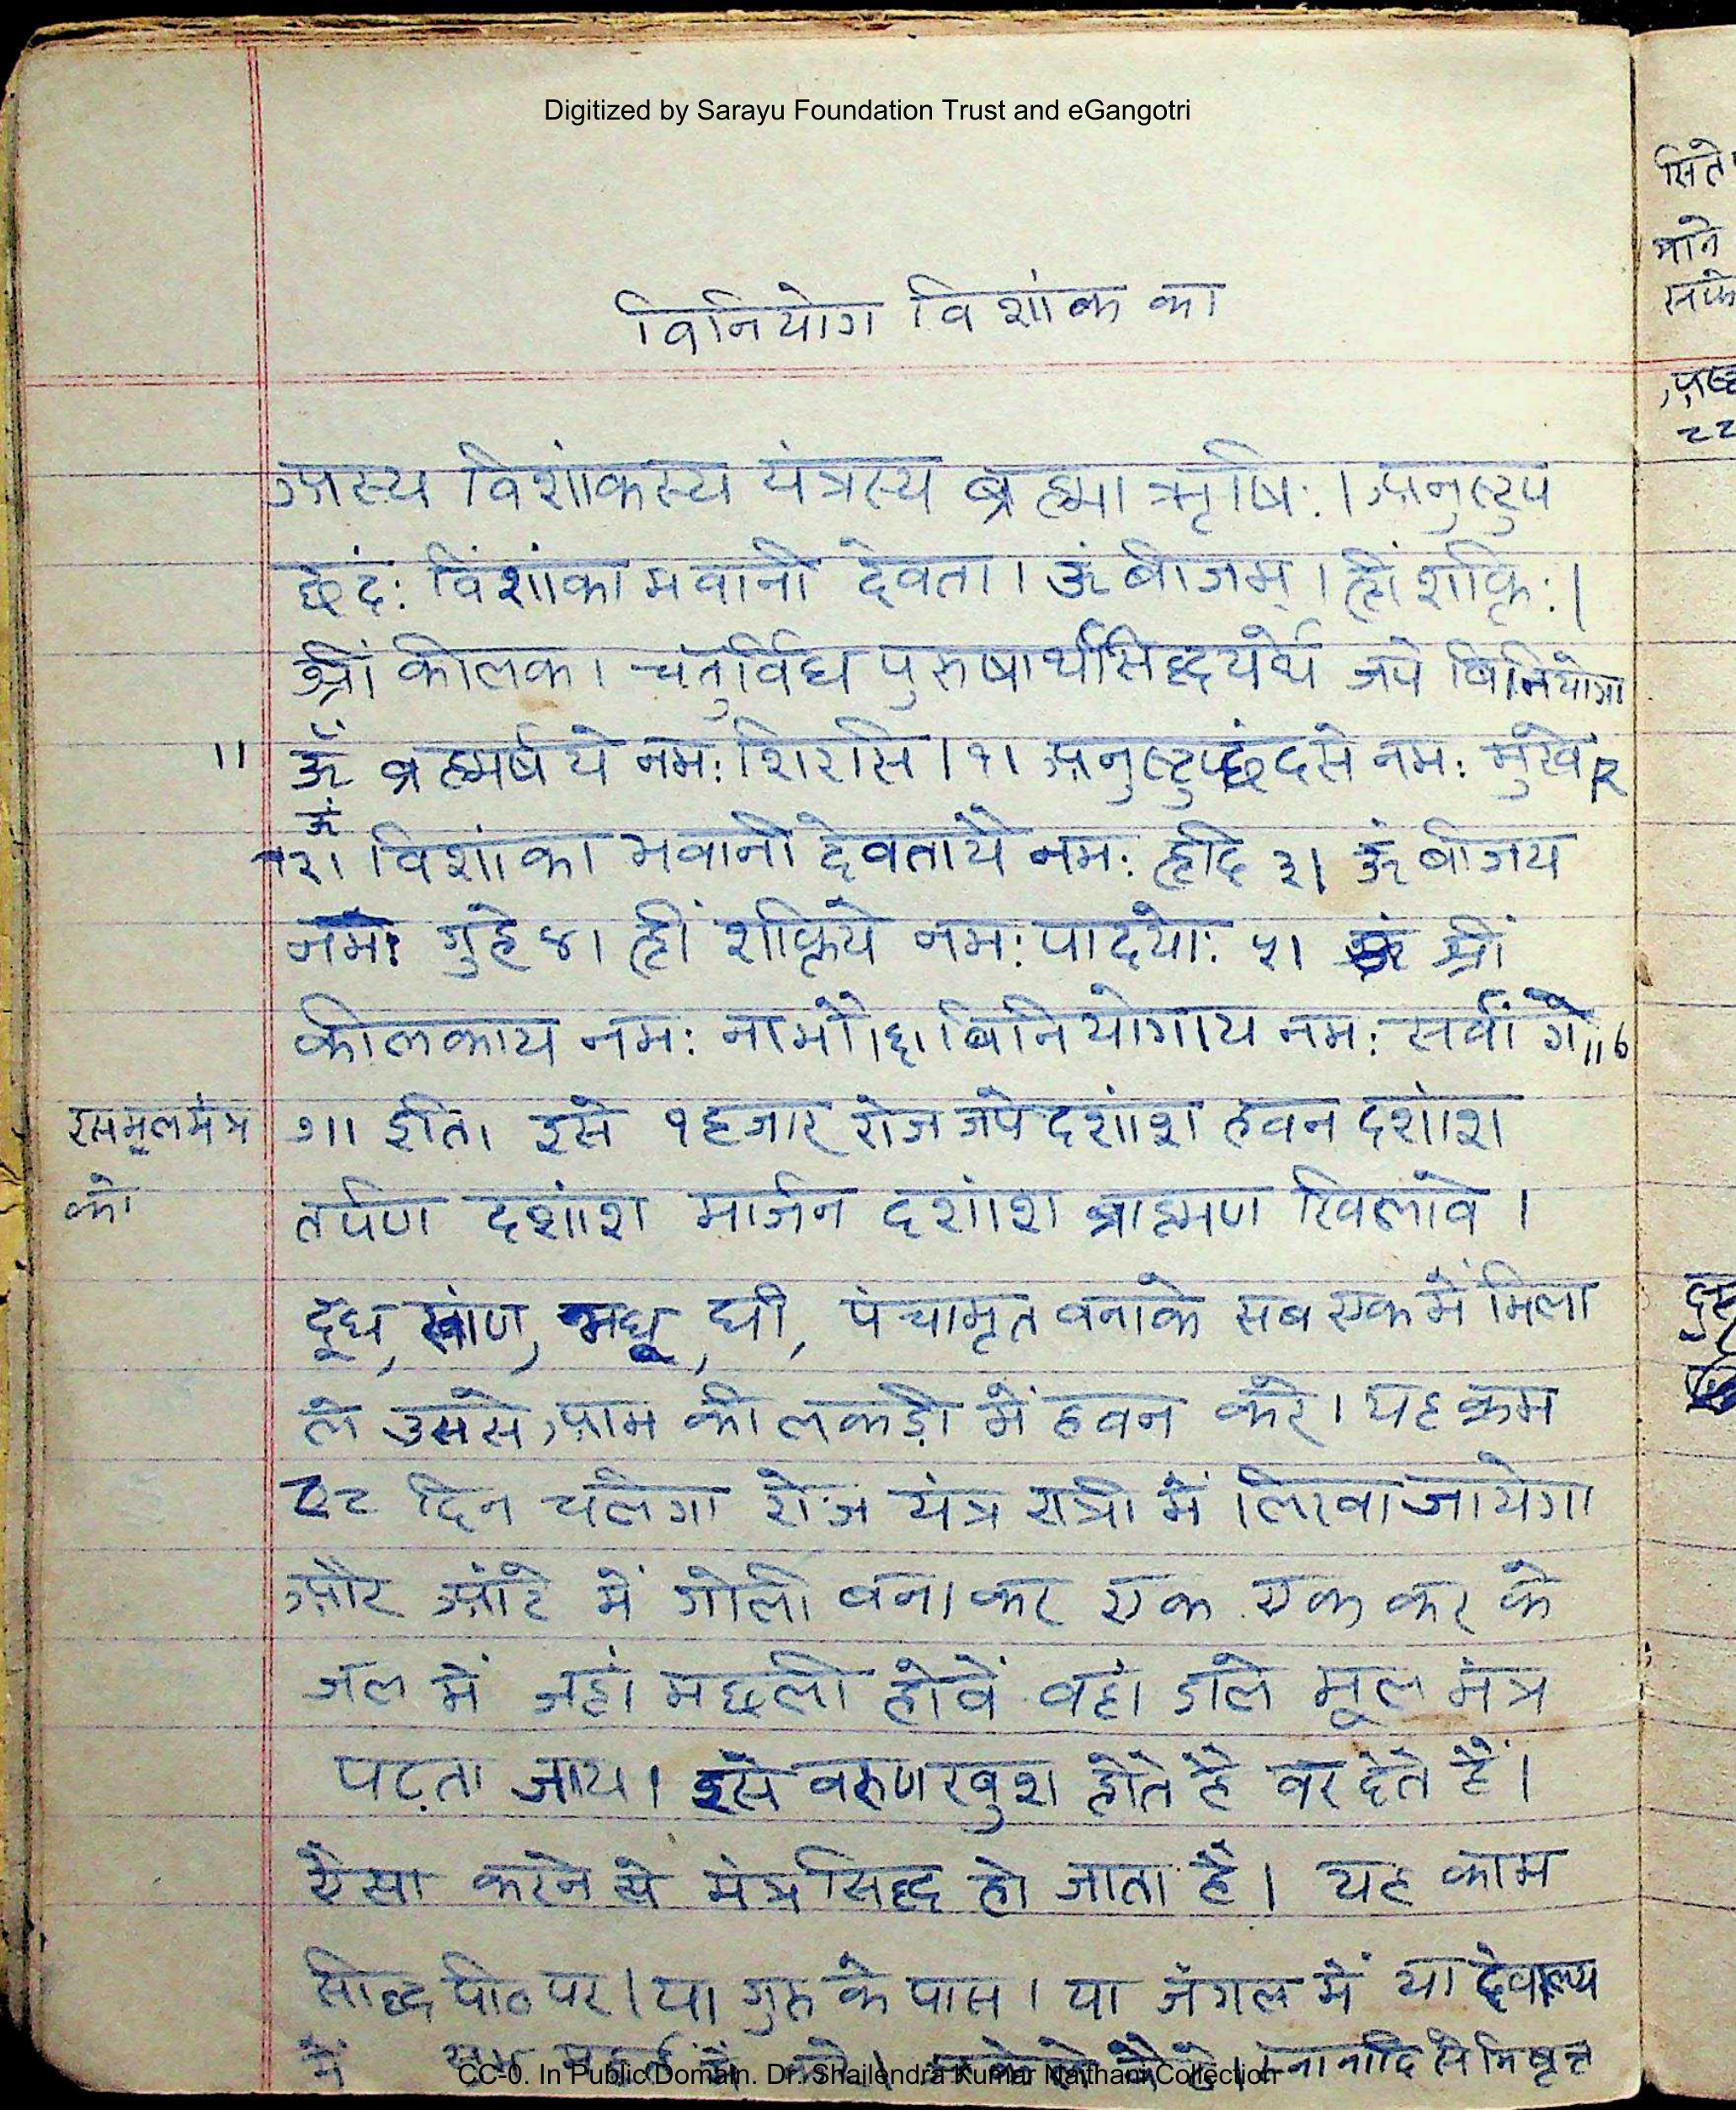 Digitized by Sarayu Foundation Trust and eGangotri
विनियोग विशांक का
अस्य विशांकस्य यंत्रस्य ब्रह्मा ऋषिः। अनुष्टुप
छंदः विंशांका भवानी देवता। ऊं बीजम्। ह्रीं शक्तिः।
श्रीं कीलक। चतुर्विध पुरुषार्थसिद्धयेर्थ जपे विनियोगा
॥ ॐ ब्रह्मर्षये नमः शिरसि।१। अनुष्टुप्छंदसे नमः मुखे २
ऊं
२। विशांका भवानी देवतायै नमः हृदि ३। ऊं बीजय
नमः गुहे ४। ह्रीं शक्तिये नमः पादयोः ५। श्रीं
कीलकाय नमः नाभौ।६। विनियोगाय नमः सर्वांगे॥७
इसमूलमंत्र ७॥ इति। इसे १हजार रोज जपे दशांश हवन दशांश
को तर्पण दशांश मार्जन दशांश ब्राह्मण खिलावे।
दूध, खांण, मधू, घी, पंचामृत वनाके सब एक में मिला
ले उससे आम की लकड़ी में हवन करे। यह क्रम
दिन चलेगा रोज यंत्र रात्री में लिखा जायेगा
और आंटे में गोली वनाकर एक एक कर के
जल में जहां मछली होवें वहां डाले मूल मंत्र
पढ़ता जाय। इसे वरुण खुश होते है वर देते हैं।
ऐसा करने से मंत्र सिद्ध हो जाता है। यह काम
सिद्ध पीठ पर। या गुरु के पास। या जंगल में या देवालय
में
CC-0. In Public Domain. Dr. Shailendra Kumar Naithani Collection